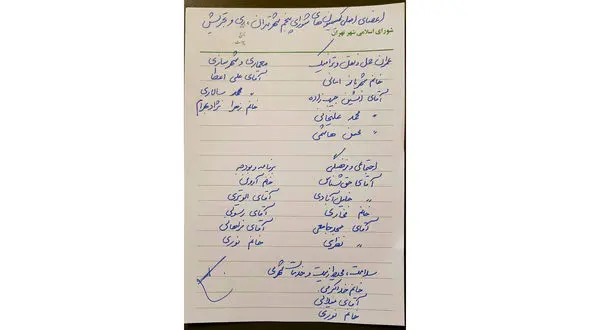 اعضای اصلی کمیسیون‌های شورای پنجم شهر تهران، ری و تجریش
شورای اسلامی شهر تهران
عمران حمل و نقل و ترافیک
خانم شهربانو امانی
آقای افشین حبیب زاده
〃 محمد علیخانی
〃 محسن هاشمی
معماری و شهرسازی
آقای علی اعطا
〃 محمد سالاری
خانم زهرا نژاد بهرام
اجتماعی و فرهنگی
آقای حق شناس
〃 خلیل آبادی
خانم فخاری
آقای مسجدجامعی
〃 نظری
برنامه و بودجه
خانم آروین
آقای الویری
آقای رسولی
آقای فراهانی
خانم نوری
سلامت، محیط زیست و خدمات شهری
خانم خداکرمی
آقای میلانی
خانم نوری